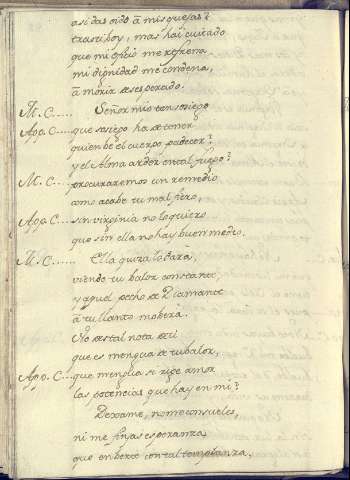 asi das oido à mis quejas è
trassi hoy, mas hai cuitado
que mi oficio me refrena
mi dignidad me condena,
à morir desesperado.
M. C..... Señor mio ten sosiego
App. C..... que sosiego ha de tener
quien bè el cuerpo padecer?
y el Alma arder en tal fuego?
M. C.... procuraremos un remedio
como acabe tu mal fiero,
App. C.... sin virginia no lo quiero
que sin ella no hay buen medio.
M. C...... Ella quiza lo darà,
viendo tu balor constante
y aquel pecho de Diamante
à tu llanto moberà.
No des tal nota de ti
que es mengua de tu balor,
App. C.... que mengua si rije amor
las potencias que hay en mi?
Dexame, no me consueles,
ni me finjas esperanza
que en berte con tal templanza.